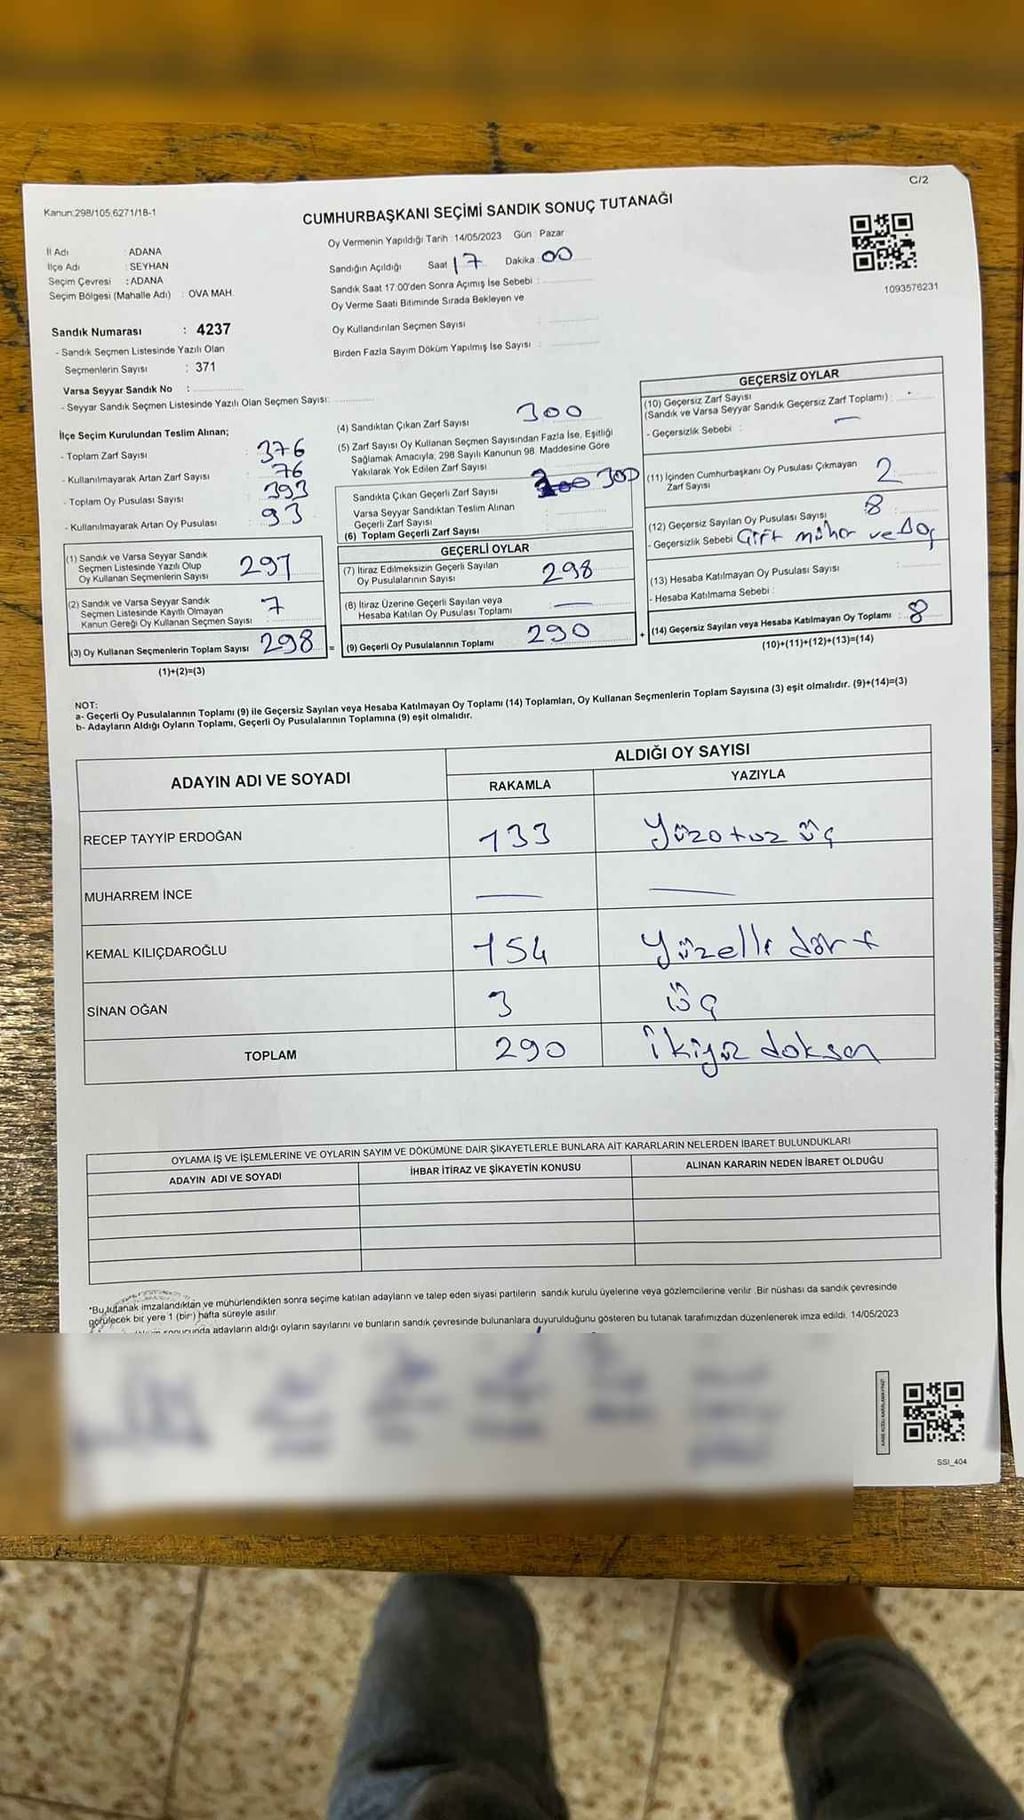 C/2
Kanun:298/105.6271/18-1
CUMHURBAŞKANI SEÇİMİ SANDIK SONUÇ TUTANAĞI
İl Adı : ADANA
İlçe Adı : SEYHAN
Seçim Çevresi : ADANA
Seçim Bölgesi (Mahalle Adı) : OVA MAH.
Oy Vermenin Yapıldığı Tarih :14/05/2023 Gün : Pazar
Sandığın Açıldığı Saat 17 Dakika 00
Sandık Saat 17:00'den Sonra Açımış İse Sebebi :
Oy Verme Saati Bitiminde Sırada Bekleyen ve
Oy Kullandırılan Seçmen Sayısı :
Birden Fazla Sayım Döküm Yapılmış İse Sayısı :
1093576231
Sandık Numarası : 4237
- Sandık Seçmen Listesinde Yazılı Olan
Seçmenlerin Sayısı : 371
Varsa Seyyar Sandık No :
- Seyyar Sandık Seçmen Listesinde Yazılı Olan Seçmen Sayısı:
İlçe Seçim Kurulundan Teslim Alınan;
- Toplam Zarf Sayısı : 376
- Kullanılmayarak Artan Zarf Sayısı : 76
- Toplam Oy Pusulası Sayısı : 393
- Kullanılmayarak Artan Oy Pusulası : 93
(1) Sandık ve Varsa Seyyar Sandık
Seçmen Listesinde Yazılı Olup
Oy Kullanan Seçmenlerin Sayısı : 291
(2) Sandık ve Varsa Seyyar Sandık
Seçmen Listesinde Kayıtlı Olmayan
Kanun Gereği Oy Kullanan Seçmen Sayısı : 7
(3) Oy Kullanan Seçmenlerin Toplam Sayısı : 298
(1)+(2)=(3)
(4) Sandıktan Çıkan Zarf Sayısı : 300
(5) Zarf Sayısı Oy Kullanan Seçmen Sayısından Fazla İse, Eşitliği
Sağlamak Amacıyla, 298 Sayılı Kanunun 98. Maddesine Göre
Yakılarak Yok Edilen Zarf Sayısı :
Sandıkta Çıkan Geçerli Zarf Sayısı : 300
Varsa Seyyar Sandıktan Teslim Alınan
Geçerli Zarf Sayısı :
(6) Toplam Geçerli Zarf Sayısı
GEÇERLİ OYLAR
(7) İtiraz Edilmeksizin Geçerli Sayılan
Oy Pusulalarının Sayısı : 298
(8) İtiraz Üzerine Geçerli Sayılan veya
Hesaba Katılan Oy Pusulası Toplamı : —
(9) Geçerli Oy Pusulalarının Toplamı : 290
=
+
GEÇERSİZ OYLAR
(10) Geçersiz Zarf Sayısı
(Sandık ve Varsa Seyyar Sandık Geçersiz Zarf Toplamı) :
- Geçersizlik Sebebi : —
(11) İçinden Cumhurbaşkanı Oy Pusulası Çıkmayan
Zarf Sayısı : 2
(12) Geçersiz Sayılan Oy Pusulası Sayısı : 8
- Geçersizlik Sebebi Çift mühür ve
(13) Hesaba Katılmayan Oy Pusulası Sayısı :
- Hesaba Katılmama Sebebi :
(14) Geçersiz Sayılan veya Hesaba Katılmayan Oy Toplamı : 8
(10)+(11)+(12)+(13)=(14)
NOT:
a- Geçerli Oy Pusulalarının Toplamı (9) ile Geçersiz Sayılan veya Hesaba Katılmayan Oy Toplamı (14) Toplamları, Oy Kullanan Seçmenlerin Toplam Sayısına (3) eşit olmalıdır. (9)+(14)=(3)
b- Adayların Aldığı Oyların Toplamı, Geçerli Oy Pusulalarının Toplamına (9) eşit olmalıdır.
ADAYIN ADI VE SOYADI
ALDIĞI OY SAYISI
RAKAMLA YAZIYLA
RECEP TAYYİP ERDOĞAN 133 Yüzotuz üç
MUHARREM İNCE — —
KEMAL KILIÇDAROĞLU 154 Yüzelli dört
SİNAN OĞAN 3 üç
TOPLAM 290 ikiyüz doksan
OYLAMA İŞ VE İŞLEMLERİNE VE OYLARIN SAYIM VE DÖKÜMÜNE DAİR ŞİKAYETLERLE BUNLARA AİT KARARLARIN NELERDEN İBARET BULUNDUKLARI
ADAYIN ADI VE SOYADI İHBAR İTİRAZ VE ŞİKAYETİN KONUSU ALINAN KARARIN NEDEN İBARET OLDUĞU
*Bu tutanak imzalandıktan ve mühürlendikten sonra seçime katılan adayların ve talep eden siyasi partilerin sandık kurulu üyelerine veya gözlemcilerine verilir. Bir nüshası da sandık çevresinde
görülecek bir yere 1 (bir) hafta süreyle asılır.
adayların aldığı oyların sayılarını ve bunların sandık çevresinde bulunanlara duyurulduğunu gösteren bu tutanak tarafımızdan düzenlenerek imza edildi. 14/05/2023
SSI_404